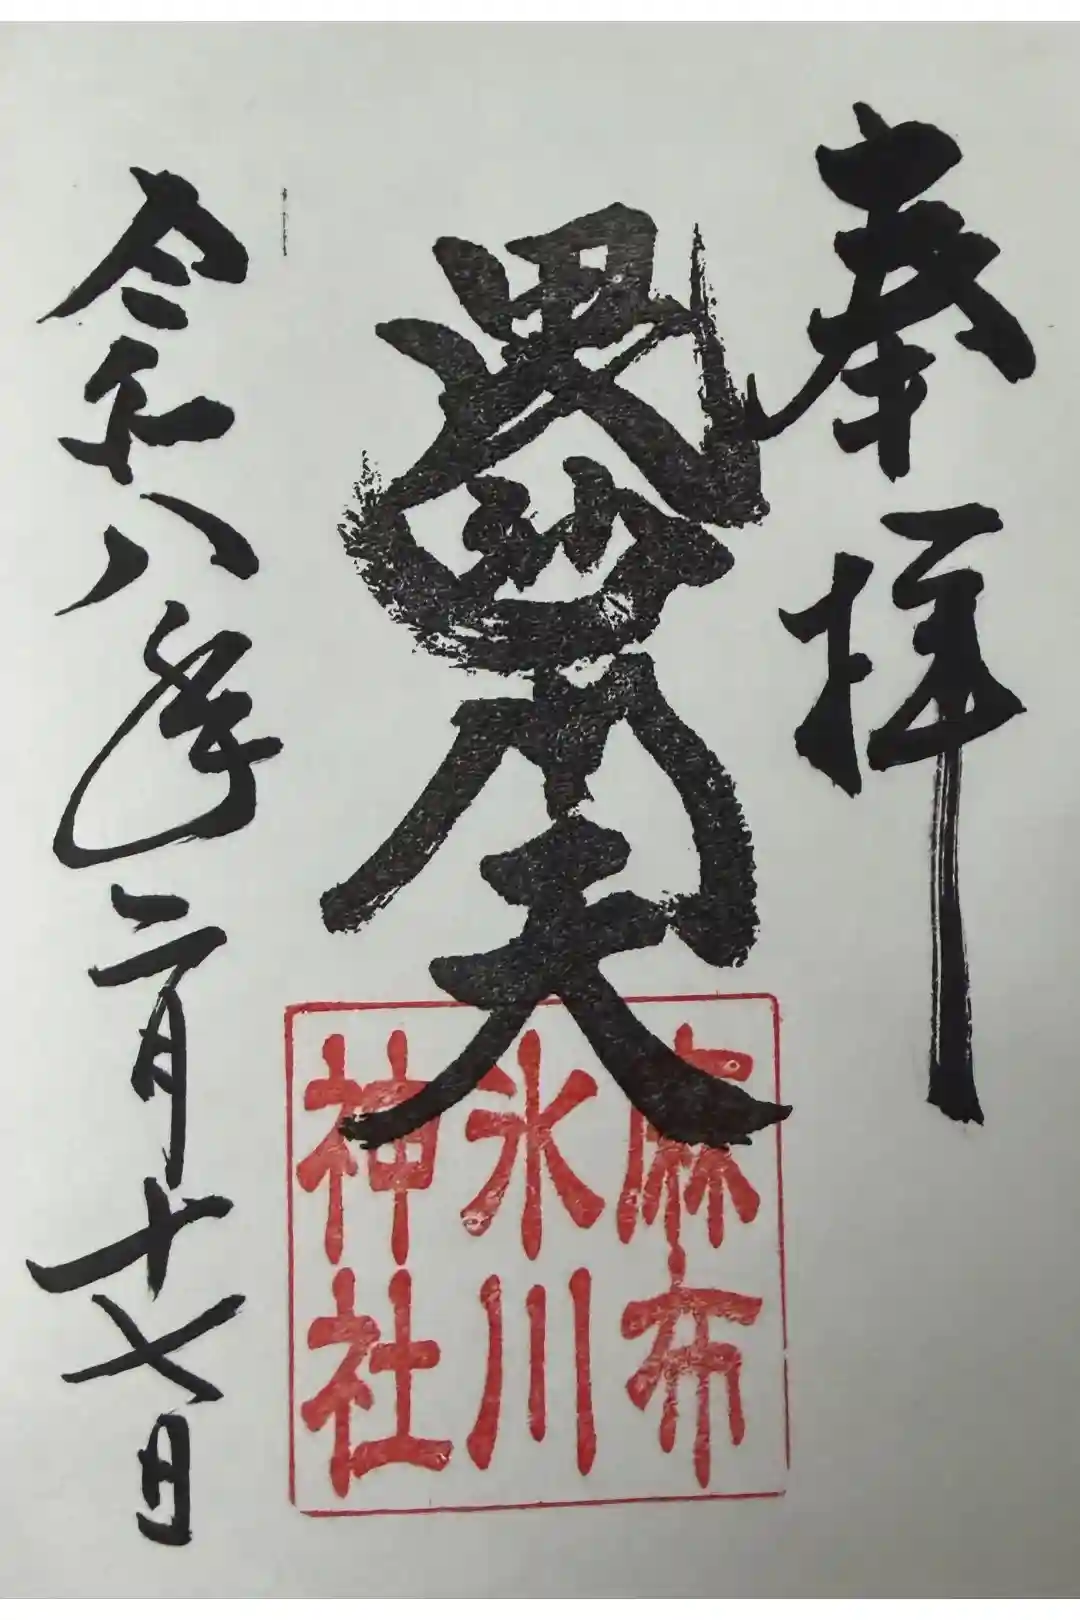 奉拝
毘沙門天
麻布
氷川
神社
令和八年二月十七日